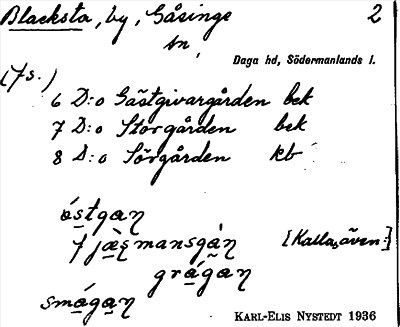 Blacksta, by, Gåsinge 2
sn,
Daga hd, Södermanlands l.
(7s.)
6 D:o Gästgivargården bek
7 D:o Storgården bek
8 D:o Sörgården kb
östgan
grågan
smågan
[Kallas även:]
KARL-ELIS NYSTEDT 1936